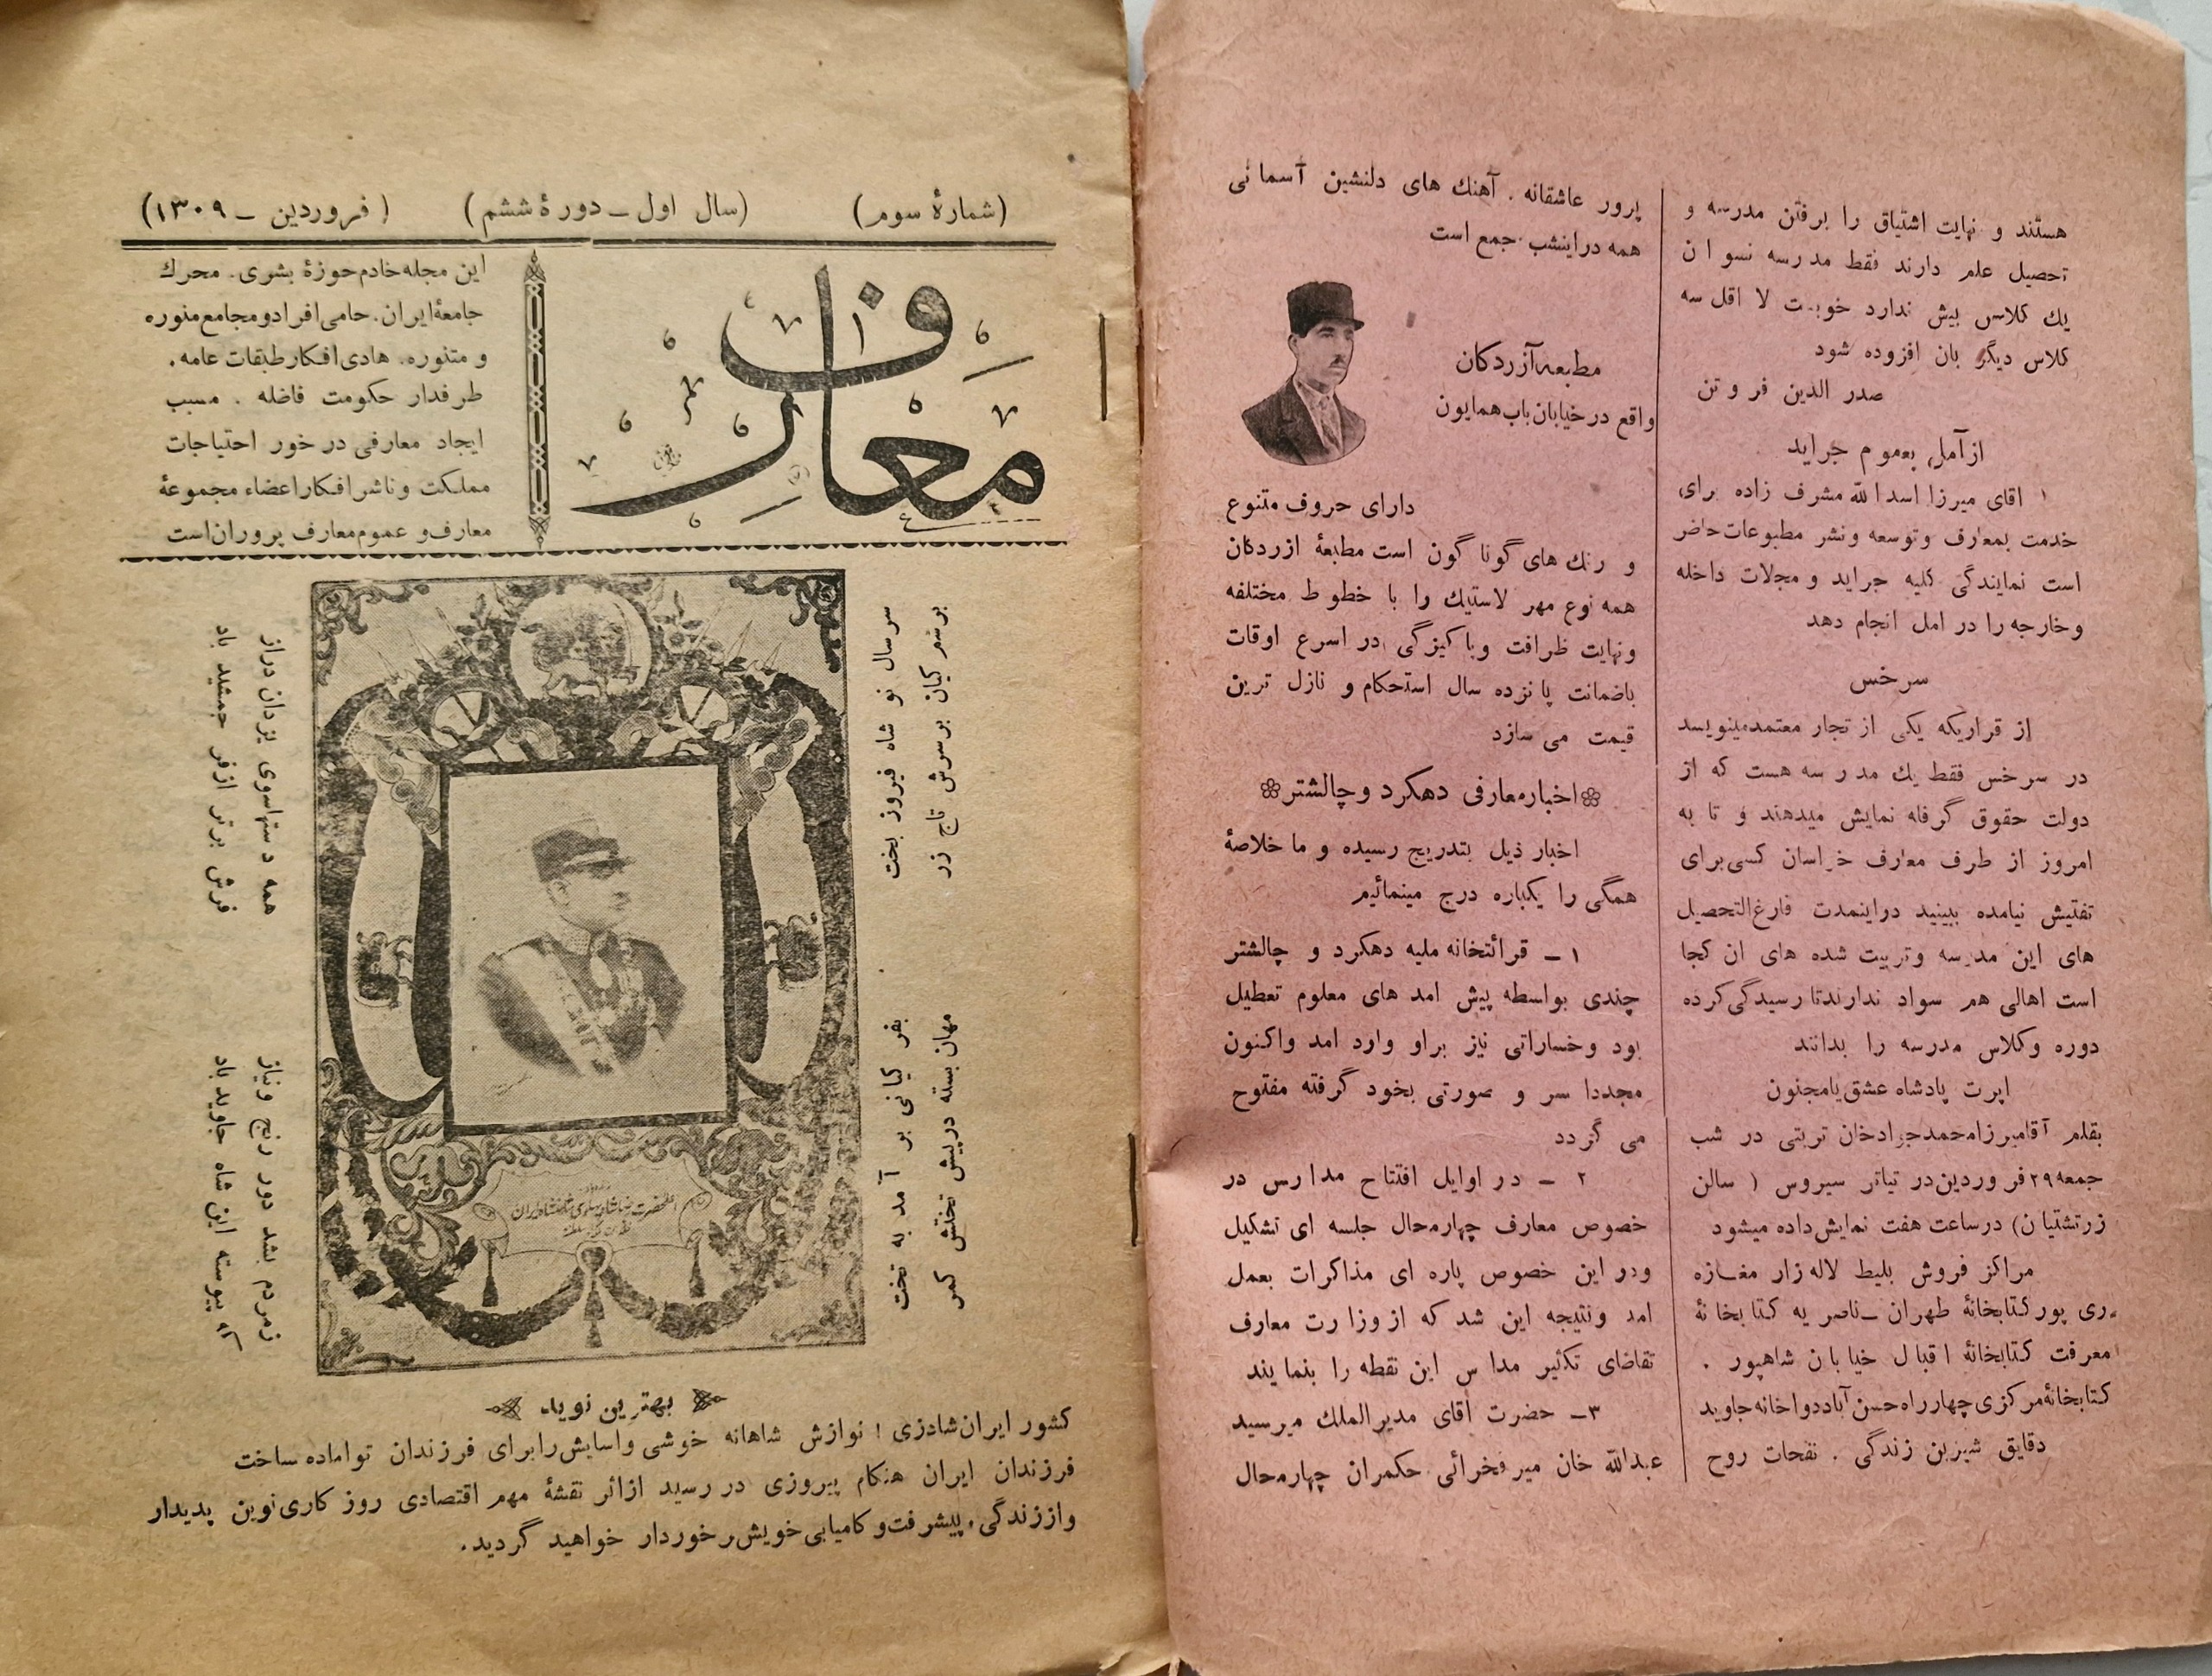 هستند و نهایت اشتیاق را برفتن مدرسه و
تحصیل علم دارند فقط مدرسه نسوان
یك کلاس بیش ندارد خوبست لا اقل سه
کلاس دیگر بان افزوده شود
صدر الدین فروتن
از آمل بعموم جراید
اقای میرزا اسدالله مشرف زاده برای
خدمت بمعارف و توسعه و نشر مطبوعات حاضر
است نمایندگی کلیه جراید و مجلات داخله
وخارجه را در امل انجام دهد
سرخس
از قراریکه یکی از تجار معتمد مینویسد
در سرخس فقط یك مدرسه هست که از
دولت حقوق گرفته نمایش میدهند و تا به
امروز از طرف معارف خراسان کسی برای
تفتیش نیامده ببینید دراینمدت فارغ‌التحصیل
های این مدرسه وتربیت شده های ان کجا
است اهالی هم سواد ندارند تا رسیدگی کرده
دوره وکلاس مدرسه را بدانند
اپرت پادشاه عشق یا مجنون
بقلم آقا میرزا محمد جوادخان تربتی در شب
جمعه ۲۹ فروردین در تیاتر سیروس ( سالن
زرتشتیان ) در ساعت هفت نمایش داده میشود
مراکز فروش بلیط لاله زار مغازه
ری پور کتابخانهٔ طهران ـ ناصریه کتابخانهٔ
معرفت کتابخانهٔ اقبال خیابان شاهپور .
کتابخانهٔ مرکزی چهار راه حسن آباد دواخانه جاوید
دقایق شیرین زندگی . نفحات روح
پرور عاشقانه . آهنك های دلنشین آسمانی
همه دراینشب جمع است
مطبعه آزردکان
واقع در خیابان باب همایون
دارای حروف متنوع
و رنك های گونا گون است مطبعهٔ ازردکان
همه نوع مهر لاستیك را با خطوط مختلفه
ونهایت ظرافت وباکیزگی در اسرع اوقات
باضمانت پانزده سال استحکام و نازل ترین
قیمت می سازد
اخبار معارفی دهکرد و چالشتر
اخبار ذیل بتدریج رسیده و ما خلاصهٔ
همگی را یکباره درج مینمائیم
۱ ـ قرائتخانه ملیه دهکرد و چالشتر
چندی بواسطه پیش امد های معلوم تعطیل
بود وخساراتی نیز براو وارد امد واکنون
مجددا سر و صورتی بخود گرفته مفتوح
می گردد
۲ ـ در اوایل افتتاح مدارس در
خصوص معارف چهارمحال جلسه ای تشکیل
ودر این خصوص پاره ای مذاکرات بعمل
امد ونتیجه این شد که از وزارت معارف
تقاضای تکثیر مدا س این نقطه را بنمایند
۳ـ حضرت اقای مدیرالملك میرسید
عبدالله خان میر فخرائی حکمران چهارمحال
(شمارهٔ سوم) (سال اول ـ دورهٔ ششم) (فروردین ـ ۱۳۰۹)
معارف
این مجله خادم حوزهٔ بشری . محرك
جامعهٔ ایران . حامی افراد و مجامع منوره
و متنوره . هادی افکار طبقات عامه .
طرفدار حکومت فاضله . مسبب
ایجاد معارفی در خور احتیاجات
مملکت و ناشر افکار اعضاء مجموعهٔ
معارف و عموم معارف پروران است
سر سال نو شاه فیروز بخت
بفر کیانی بر آمد به تخت
برسم کیان برسرش تاج زر
مهان بسته درپیش تختش کمر
همه دستها سوی یزدان دراز
زمردم بشد دور رنج ونیاز
فرش برتر ازفر جمشید باد
که پیوسته این شاه جاوید باد
اعلیحضرت رضا شاه پهلوی شاهنشاه ایران
بهترین نوید
کشور ایران شادزی ! نوازش شاهانه خوشی واسایش را برای فرزندان تو اماده ساخت
فرزندان ایران هنکام پیروزی در رسید ازاثر نقشهٔ مهم اقتصادی روز کاری نوین پدیدار
واززندگی ، پیشرفت و کامیابی خویش برخوردار خواهید گردید .